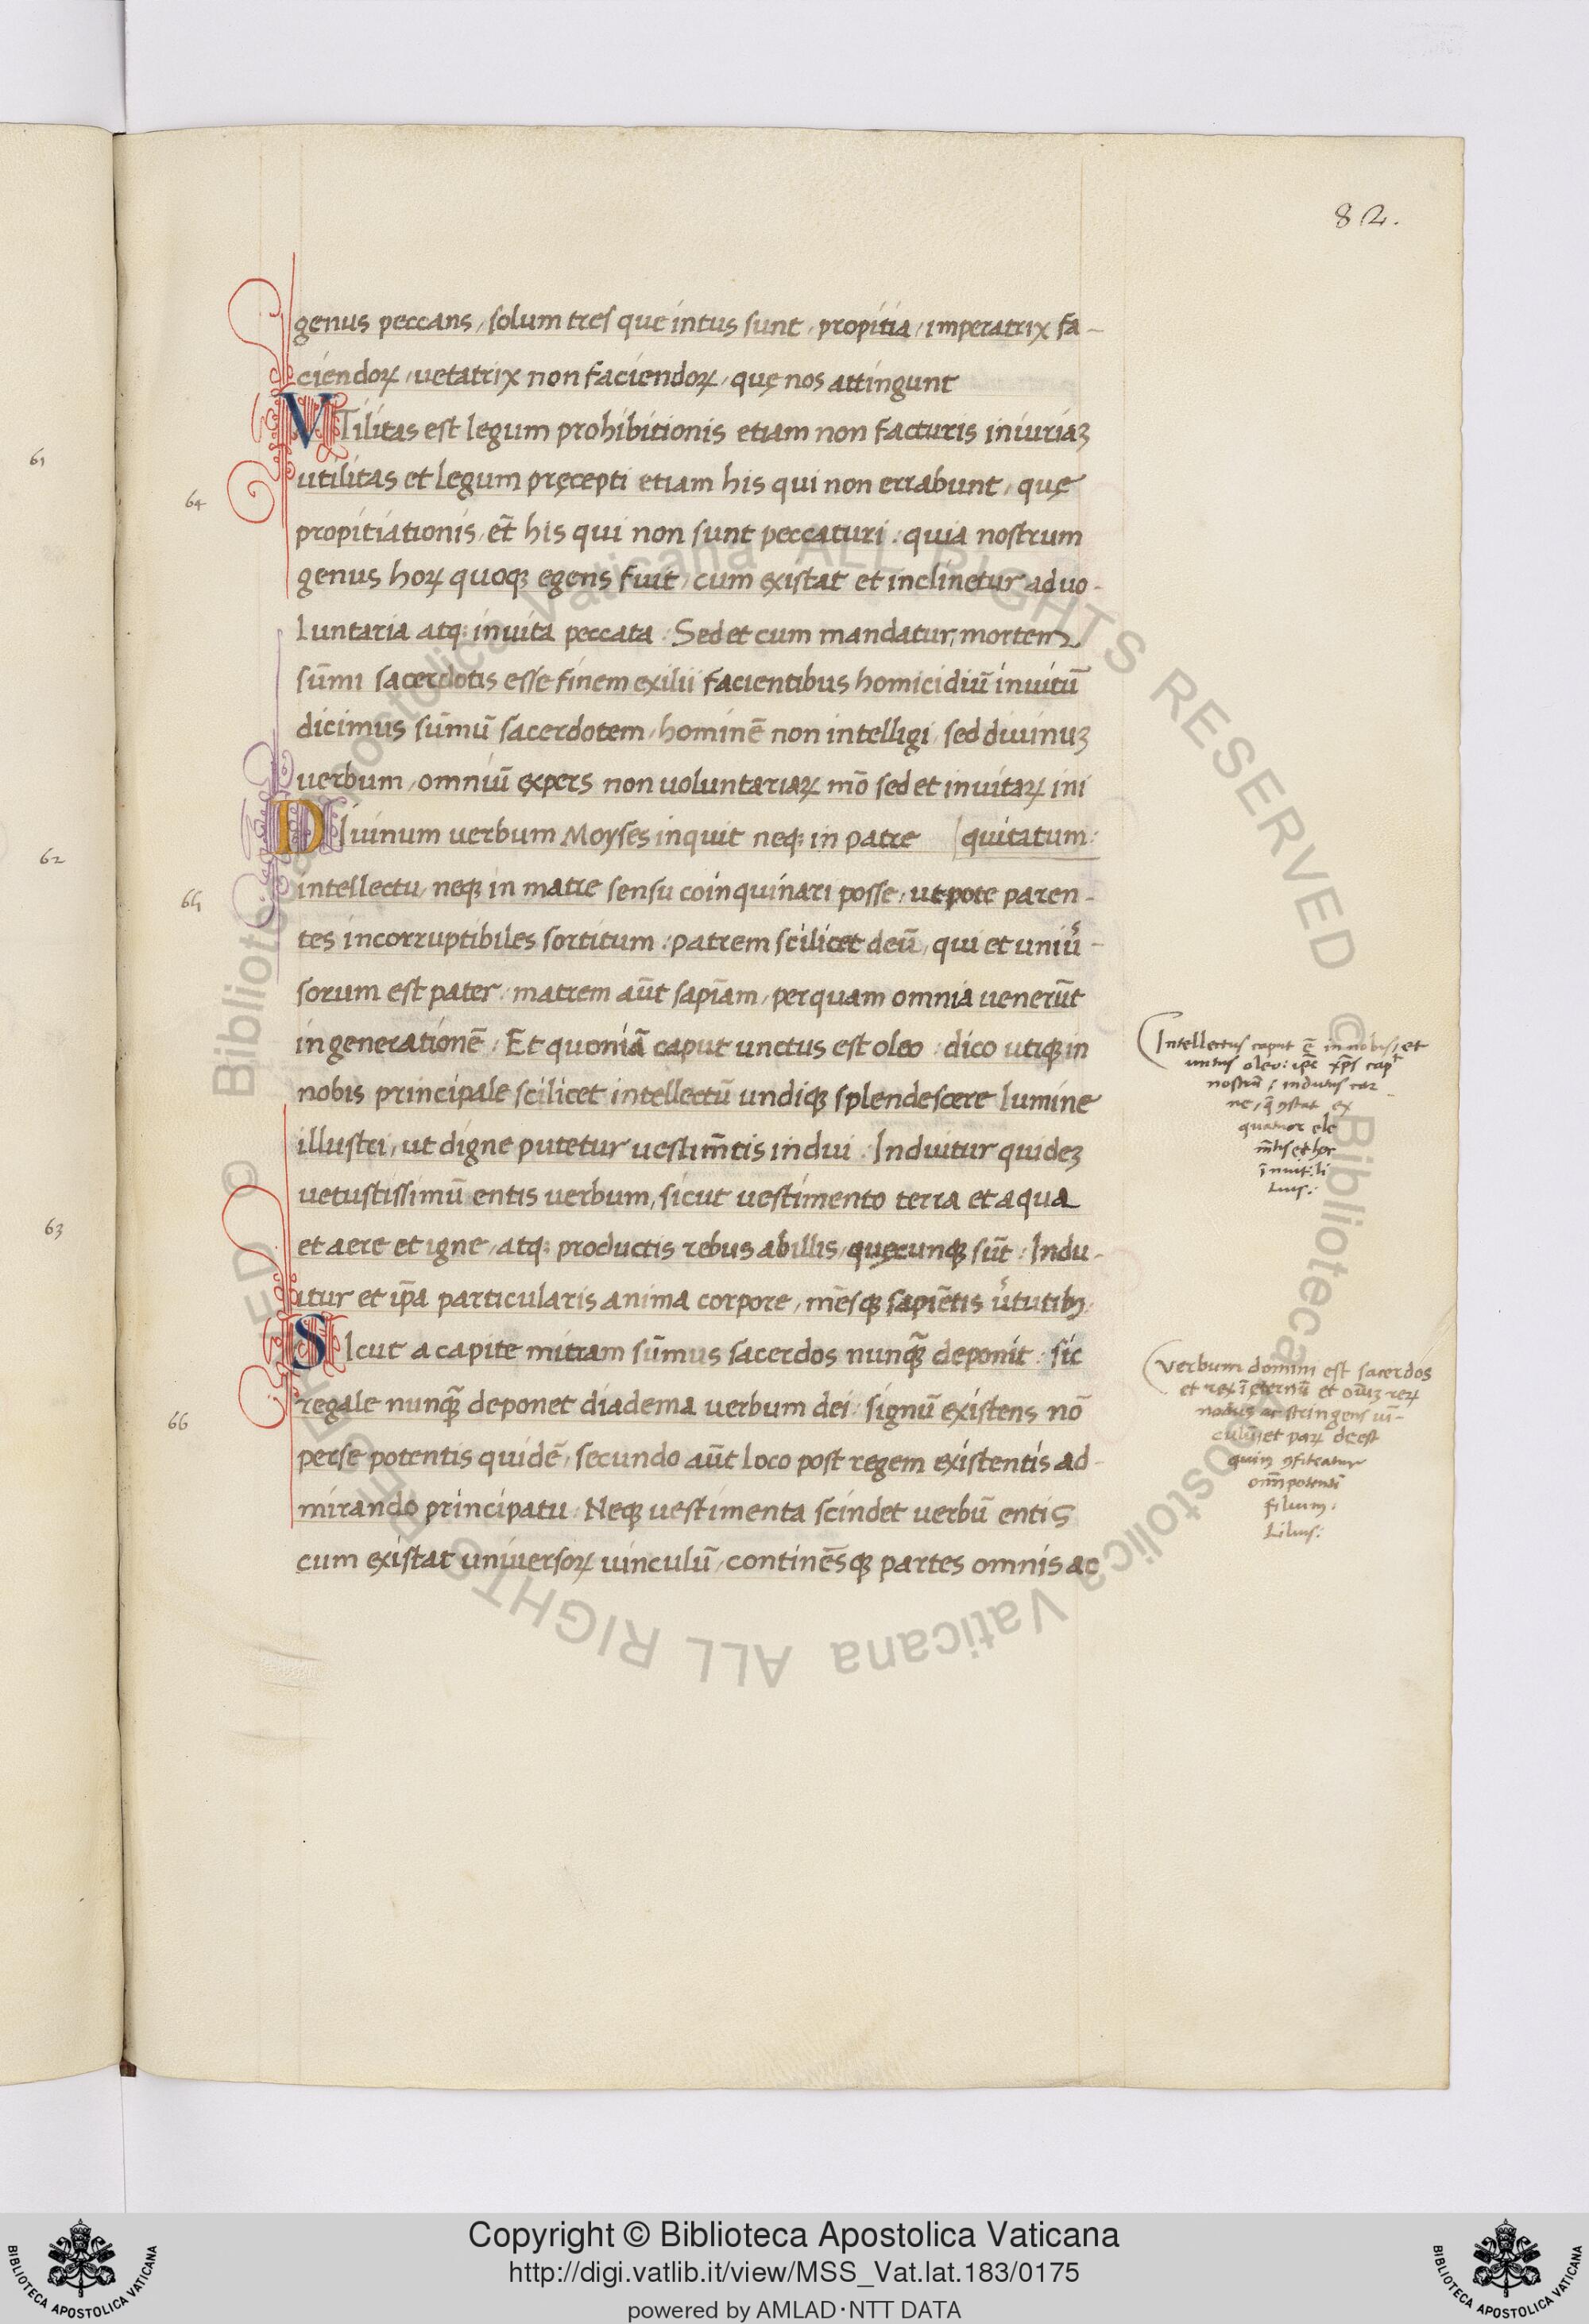 82.
genus peccans, solum tres que intus sunt, propitia, imperatrix fa-
ciendoꝝ, uetatrix non faciendoꝝ, quę nos attingunt
VTilitas est legum prohibitionis etiam non facturis iniuriaꝫ
utilitas et legum pręcepti etiam his qui non errabunt, quę
propitiationis, et̄ his qui non sunt peccaturi: quia nostrum
genus hoꝝ quoqꝫ egens fuit, cum existat et inclinetur ad uo-
luntaria atqꝫ inuita peccata. Sed et cum mandatur, mortem
sūmi sacerdotis esse finem exilii facientibus homicidiū inuitū
dicimus sūmū sacerdotem, hominē non intelligi, sed diuinuꝫ
uerbum, omniū expers non uoluntariaꝝ mō sed et inuitaꝝ ini
DIuinum uerbum Moyses inquit neqꝫ in patre quitatum:
intellectu, neqꝫ in matre sensu coinquinari posse, utpote paren-
tes incorruptibiles sortitum: patrem scilicet deū, qui et uniu̾-
sorum est pater: matrem aūt sapīam, per quam omnia uenerūt
in generationē. Et quoniā caput unctus est oleo: dico utiqꝫ in
nobis principale scilicet intellectū undiqꝫ splendescere lumine
illustri, ut digne putetur uestim̄tis indui. Induitur quideꝫ
uetustissimū entis uerbum, sicut uestimento terra et aqua
et aere et igne, atqꝫ productis rebus ab illis, quęcunqꝫ sūt: Indu-
itur et ip̄a particularis anima corpore, mēsqꝫ sapiētis u̾tutibꝫ.
SIcut a capite mitram sūmus sacerdos nunqꝫ̄ deponit: sic
regale nunqꝫ̄ deponet diadema uerbum dei: signū existens nō
per se potentis quidē, secundo aūt loco post regem existentis ad-
mirando principatu. Neqꝫ uestimenta scindet uerbū entis
cum existat uniuersoꝝ uinculū, continēsqꝫ partes omnis ac
61
64
62
65
63
66
Intellectus caput ē in nobis, et
untus oleo: ip̄e xp̄s cap
nostrū; indutus car
ne, q̄ ꝯstat ex
quatuor ele
m̄tis et hor
Lilius:
Verbum domini est sacerdos
et rex ī ęternū et oīuꝫ reꝝ
nodus astringens ui-
culū, et paꝝ deest
quin ꝯfiteatur
om̄ipotenti
filium.
Lilius:
© Biblioteca Apostolica Vaticana ALL RIGHTS RESERVED © Biblioteca Apostolica Vaticana ALL RIGHTS RESERVED
Copyright © Biblioteca Apostolica Vaticana
http://digi.vatlib.it/view/MSS_Vat.lat.183/0175
powered by AMLAD·NTT DATA
BIBLIOTECA APOSTOLICA VATICANA
BIBLIOTECA APOSTOLICA VATICANA